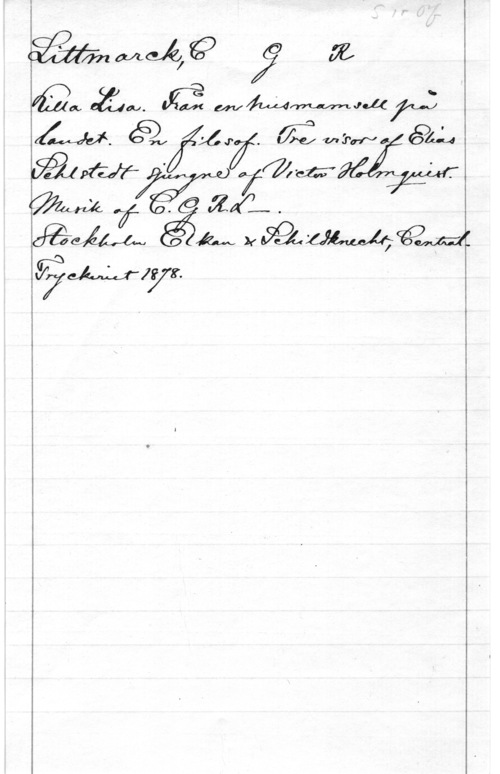 S i r Of
Littmarck, C G R
Lilla Lisa. Från en husmamsell på
landet. En filosof. Tre visor af Elias
Sehlstedt sjungne af Victor Holmquist.
Musik af C. G. R. L—.
Stockholm Elkan & Schildknecht, Central-
Tryckeriet 1878.